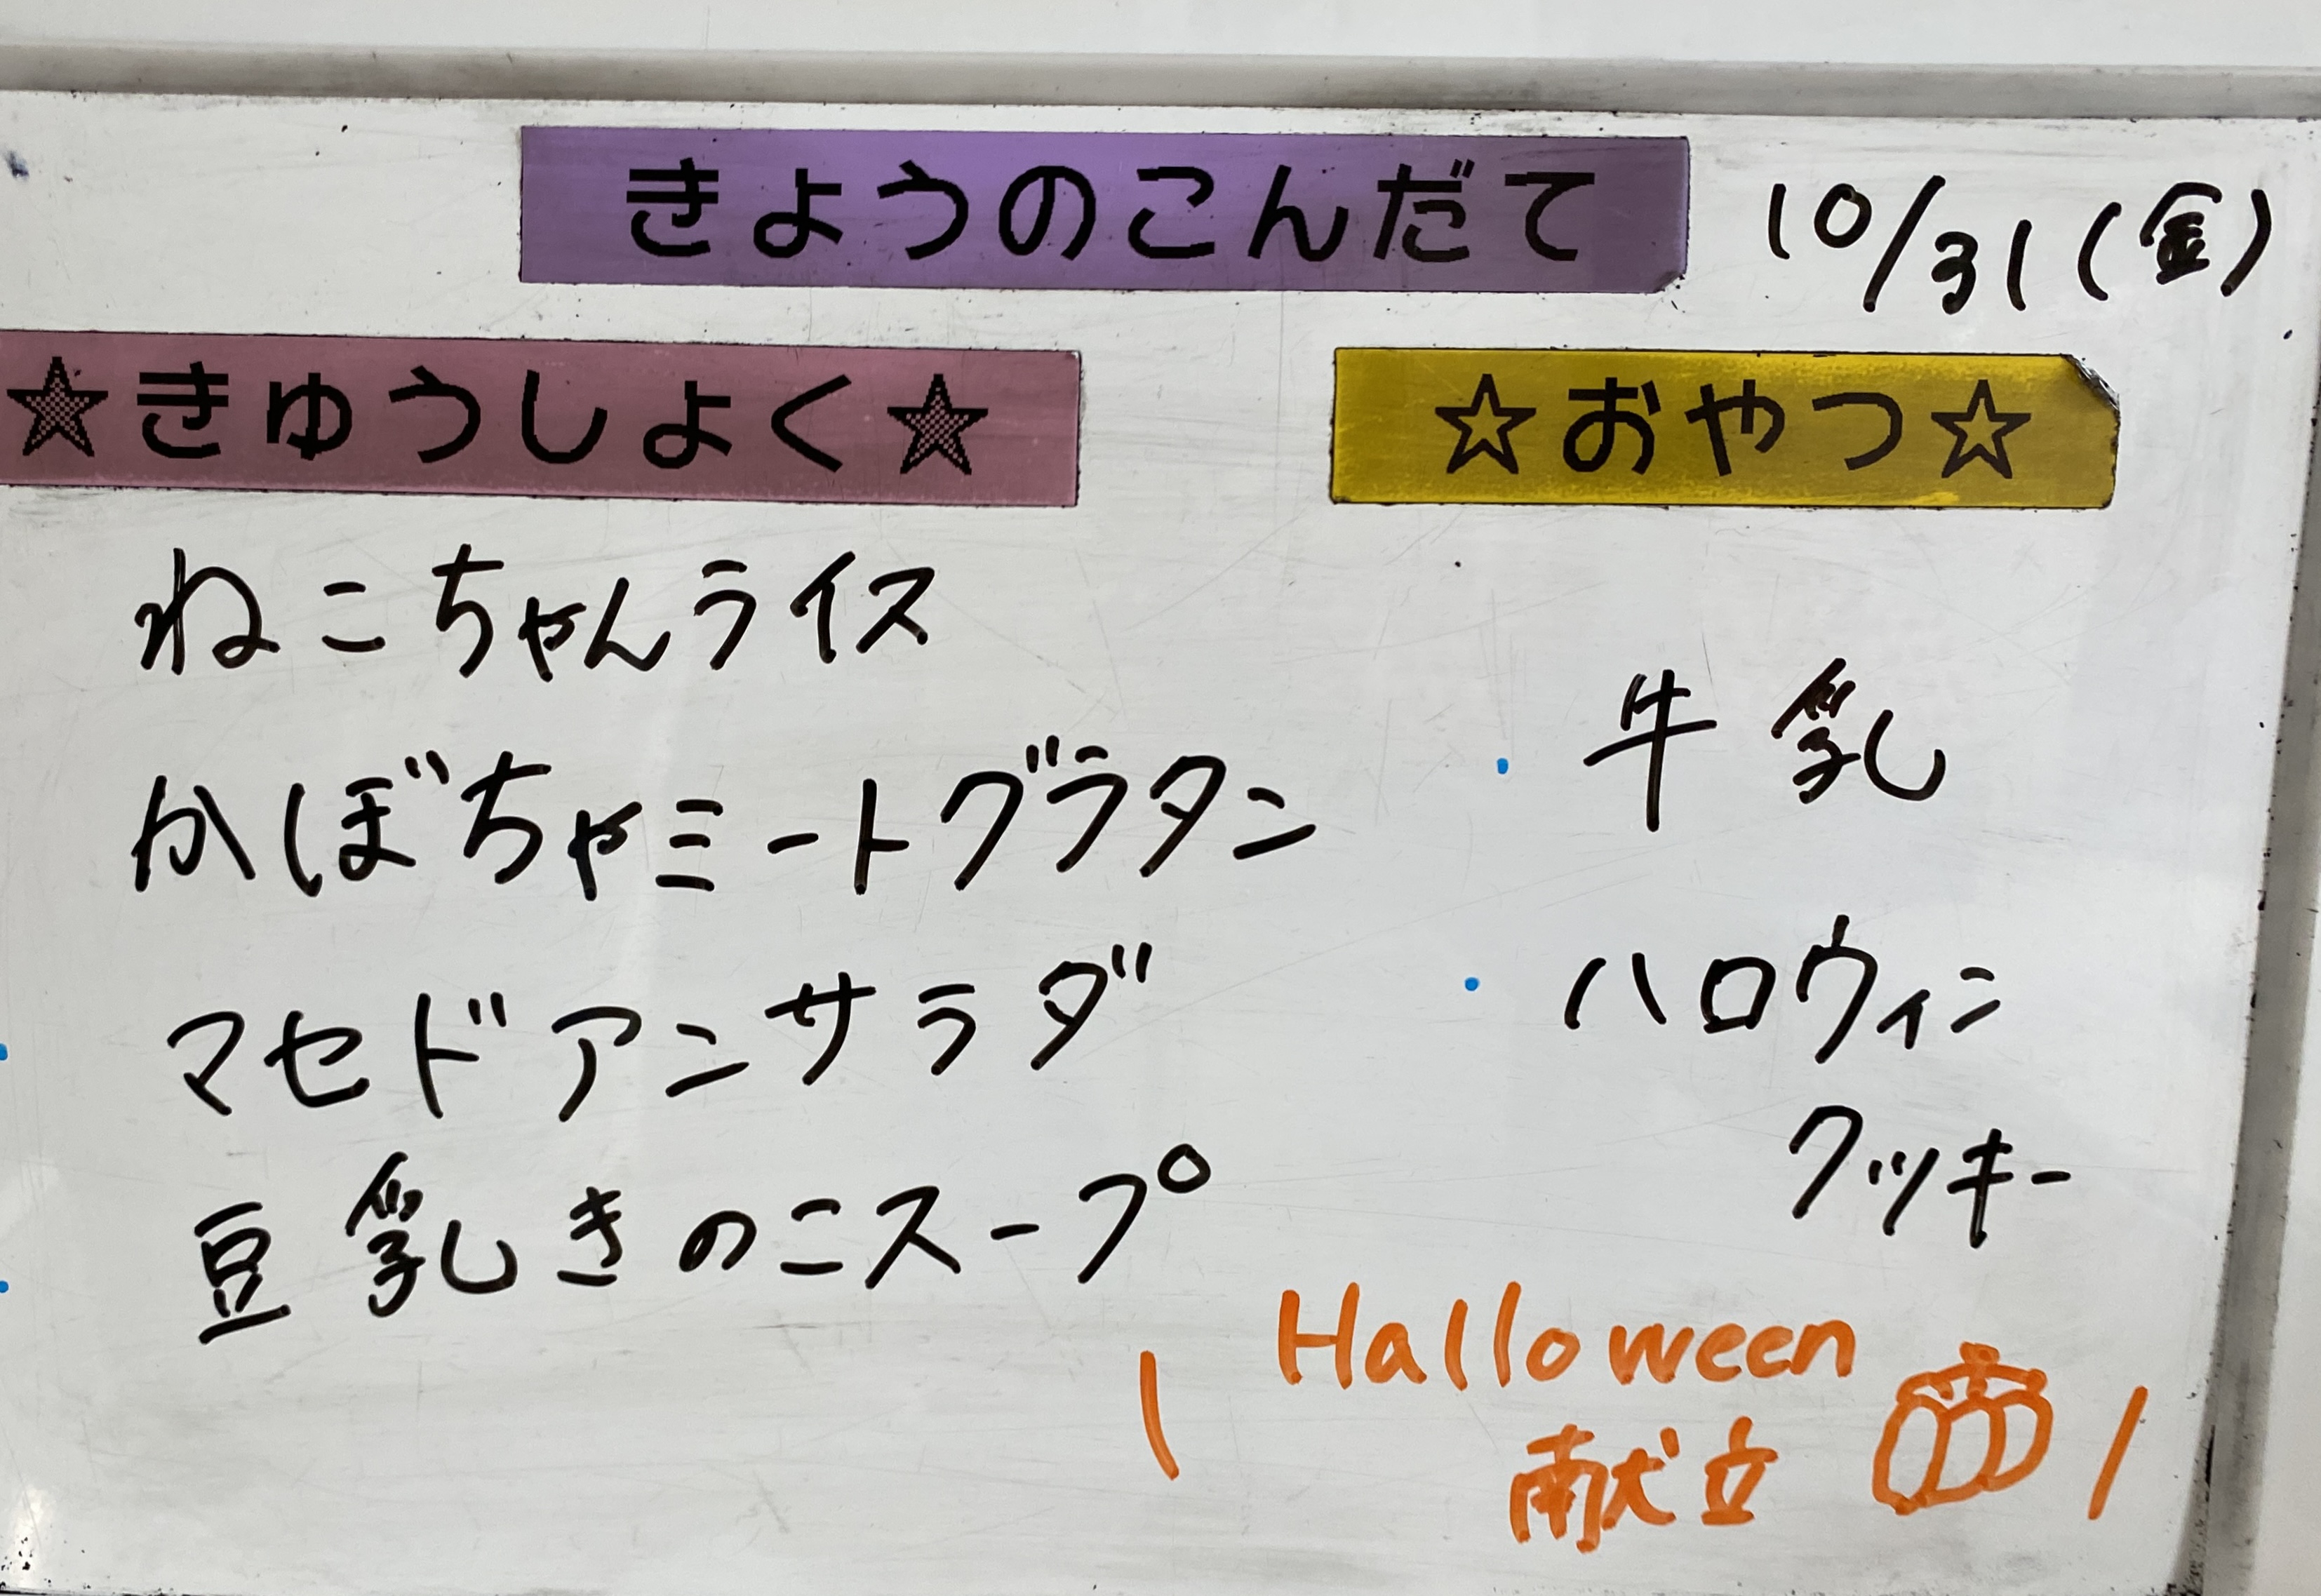 きょうのこんだて 10/31(金)
☆きゅうしょく☆
ねこちゃんライス
かぼちゃミートグラタン
マセドアンサラダ
豆乳きのこスープ
☆おやつ☆
・牛乳
・ハロウィン
クッキー
Halloween
献立